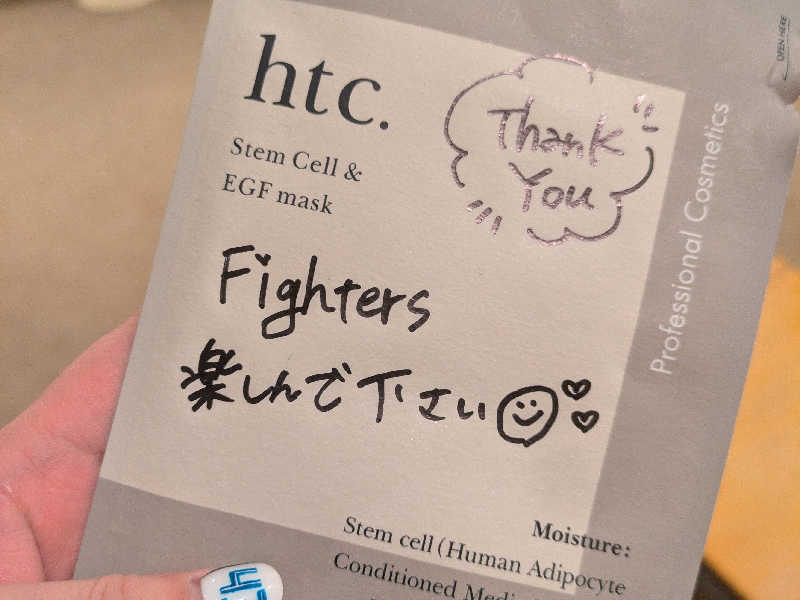 htc.
Stem Cell &
EGF mask
Thank
You
OPEN HERE
Professional Cosmetics
Fighters
楽しんで下さい
Moisture:
Stem cell (Human Adipocyte
Conditioned